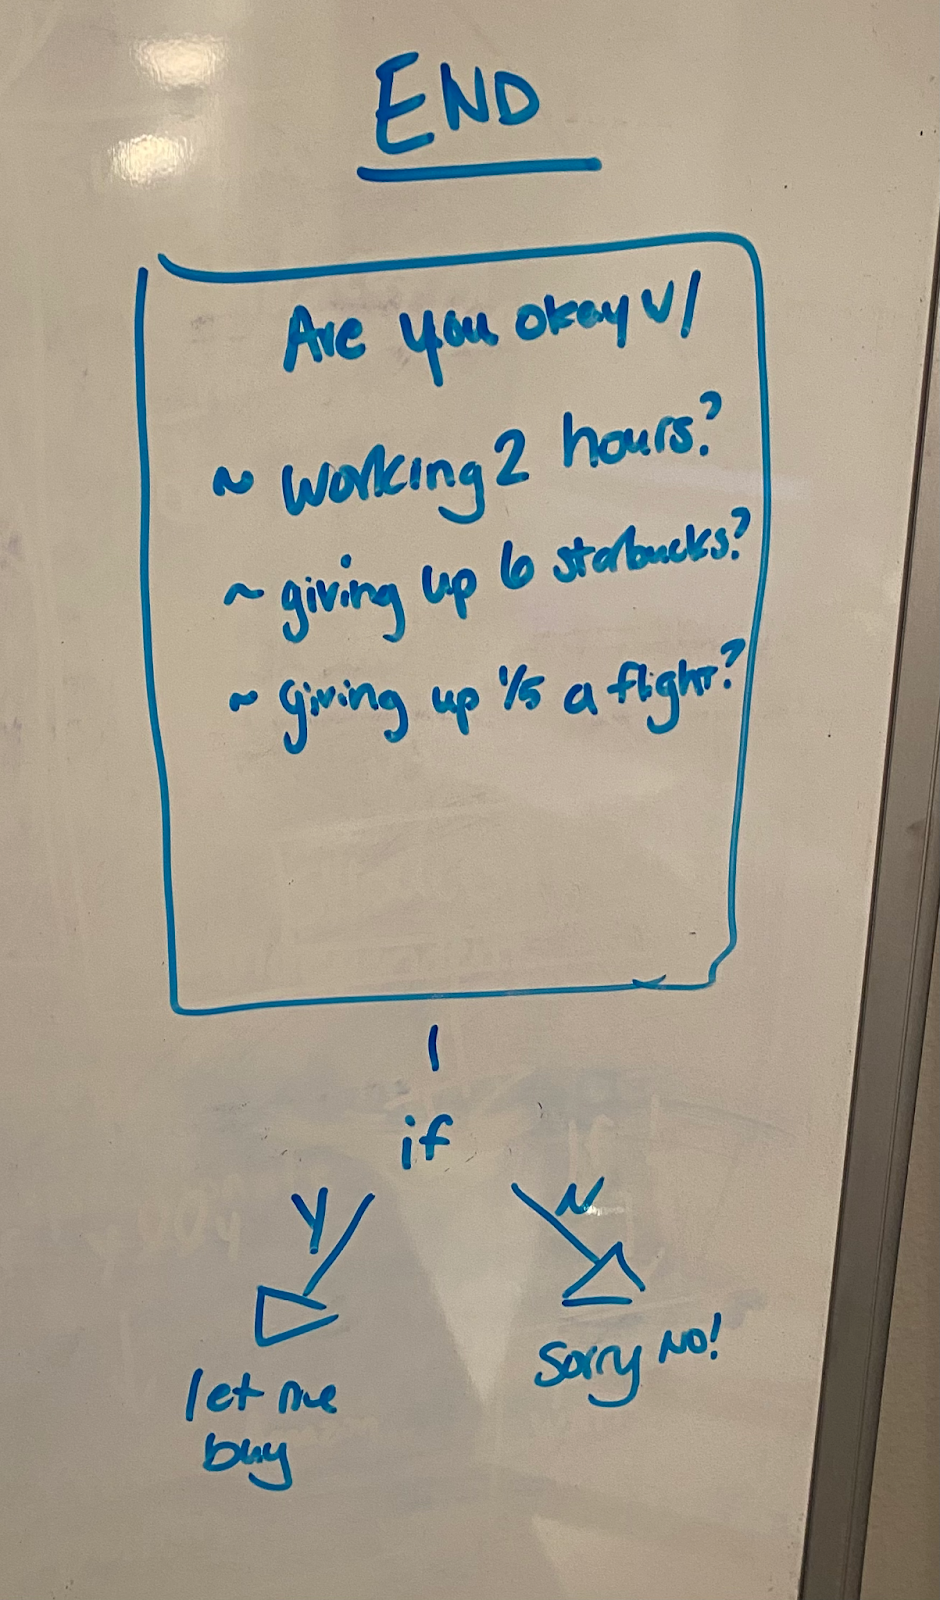 END
Are you okay w/
~ working 2 hours?
~ giving up 6 starbucks?
~ giving up 1/5 a flight?
if
Y N
let me
buy
Sorry NO!